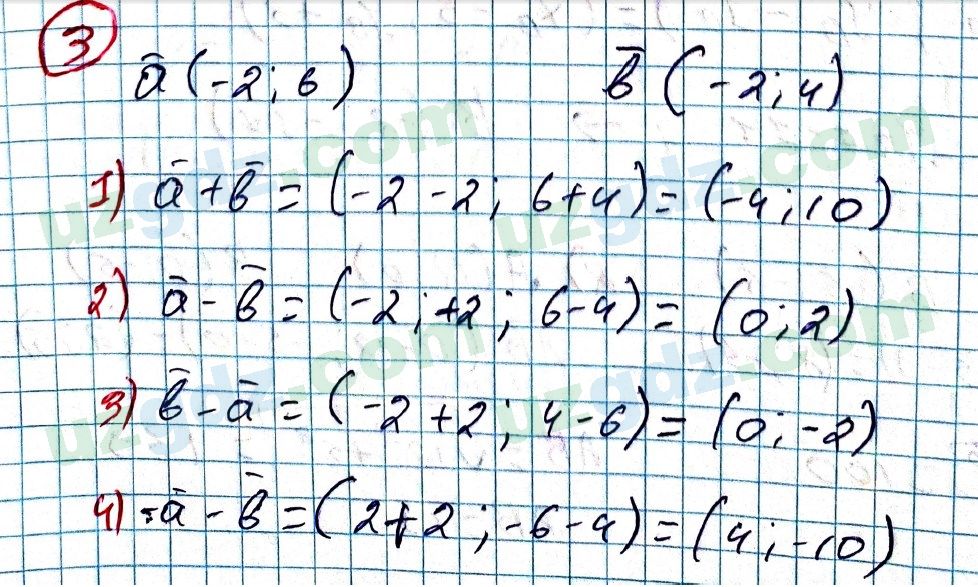 3
ā (-2; 6) b̄ (-2; 4)
1) ā + b̄ = (-2 -2; 6+4) = (-4; 10)
2) ā - b̄ = (-2; +2; 6-4) = (0; 2)
3) b̄ - ā = (-2 +2; 4-6) = (0; -2)
4) -ā - b̄ = (2+2; -6-4) = (4; -10)
uzgdz.com
uzgdz.com
uzgdz.com
uzgdz.com